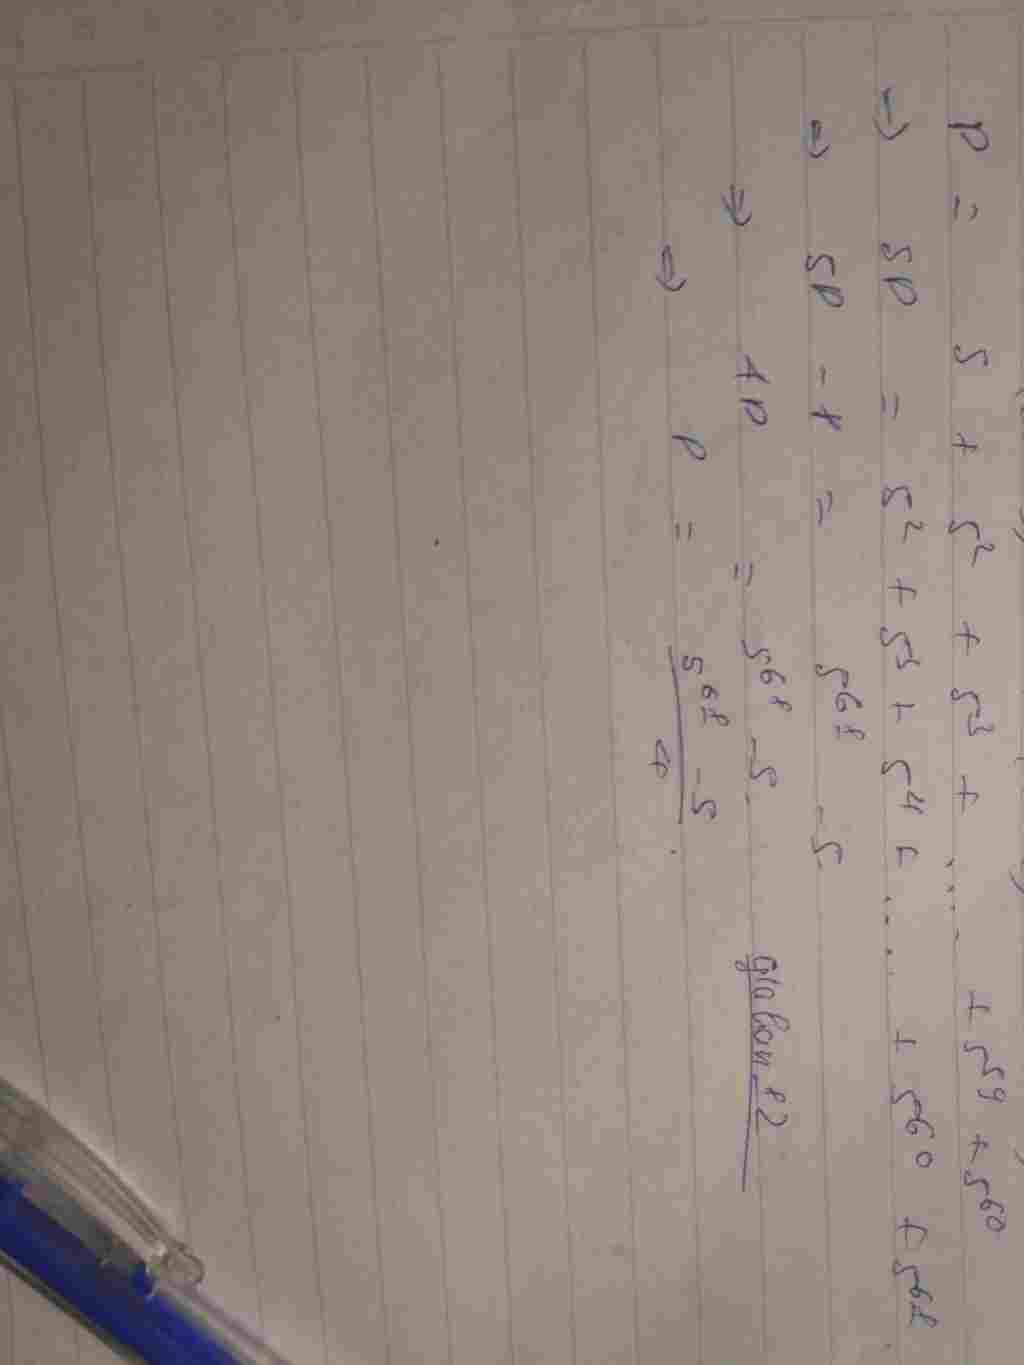 P = 5 + 5² + 5³ + .... + 5⁵⁹ + 5⁶⁰
→ 5P = 5² + 5³ + 5⁴ + .... + 5⁶⁰ + 5⁶¹
⇒ 5P - P = 5⁶¹ - 5
⇒ 4P = 5⁶¹ - 5
⇒ P = (5⁶¹ - 5)/4